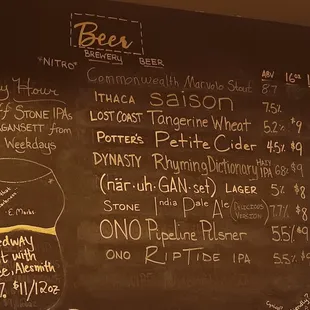 Beer
BREWERY BEER
"NITRO"
ABV 16oz
Commonwealth Marvolo Stout 8.7
y Hour
ITHACA saison 7.5%
FF STONE IPAs
LOST COAST Tangerine Wheat 5.2% $9
GANSETT from
POTTER'S Petite Cider 4.5% $9
Weekdays
DYNASTY Rhyming Dictionary HAZY IPA 6.8% $9
(när·uh·GAN·set) LAGER 5% $8
STONE India Pale Ale (PRECIOUS VERSION) 7.7% $8
-E. Marks
ONO Pipeline Pilsner 5.5% $9
edway
ONO RIPTIDE IPA 5.5% $
t with
ee, Alesmith
%. $11/12oz